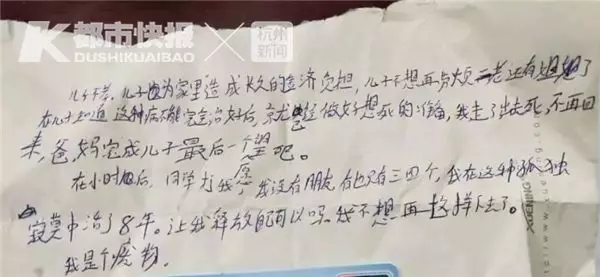 都市快报
DUSHIKUAIBAO
杭州新闻
儿子不孝,儿子因为家里造成长久的经济负担,儿子不想再劳烦二老还有姐姐了
在儿子知道这种病不能完全治好后,就已经做好想死的准备,我走了出去死了不再回
来,爸妈完成儿子最后一个愿望吧。
在小时候后,同学打我了我没有朋友,有也只有三四个,我在这种孤独
寂寞中治了8年。让我释放自己可以吗,我不想再这样下去了。
我是个废物。